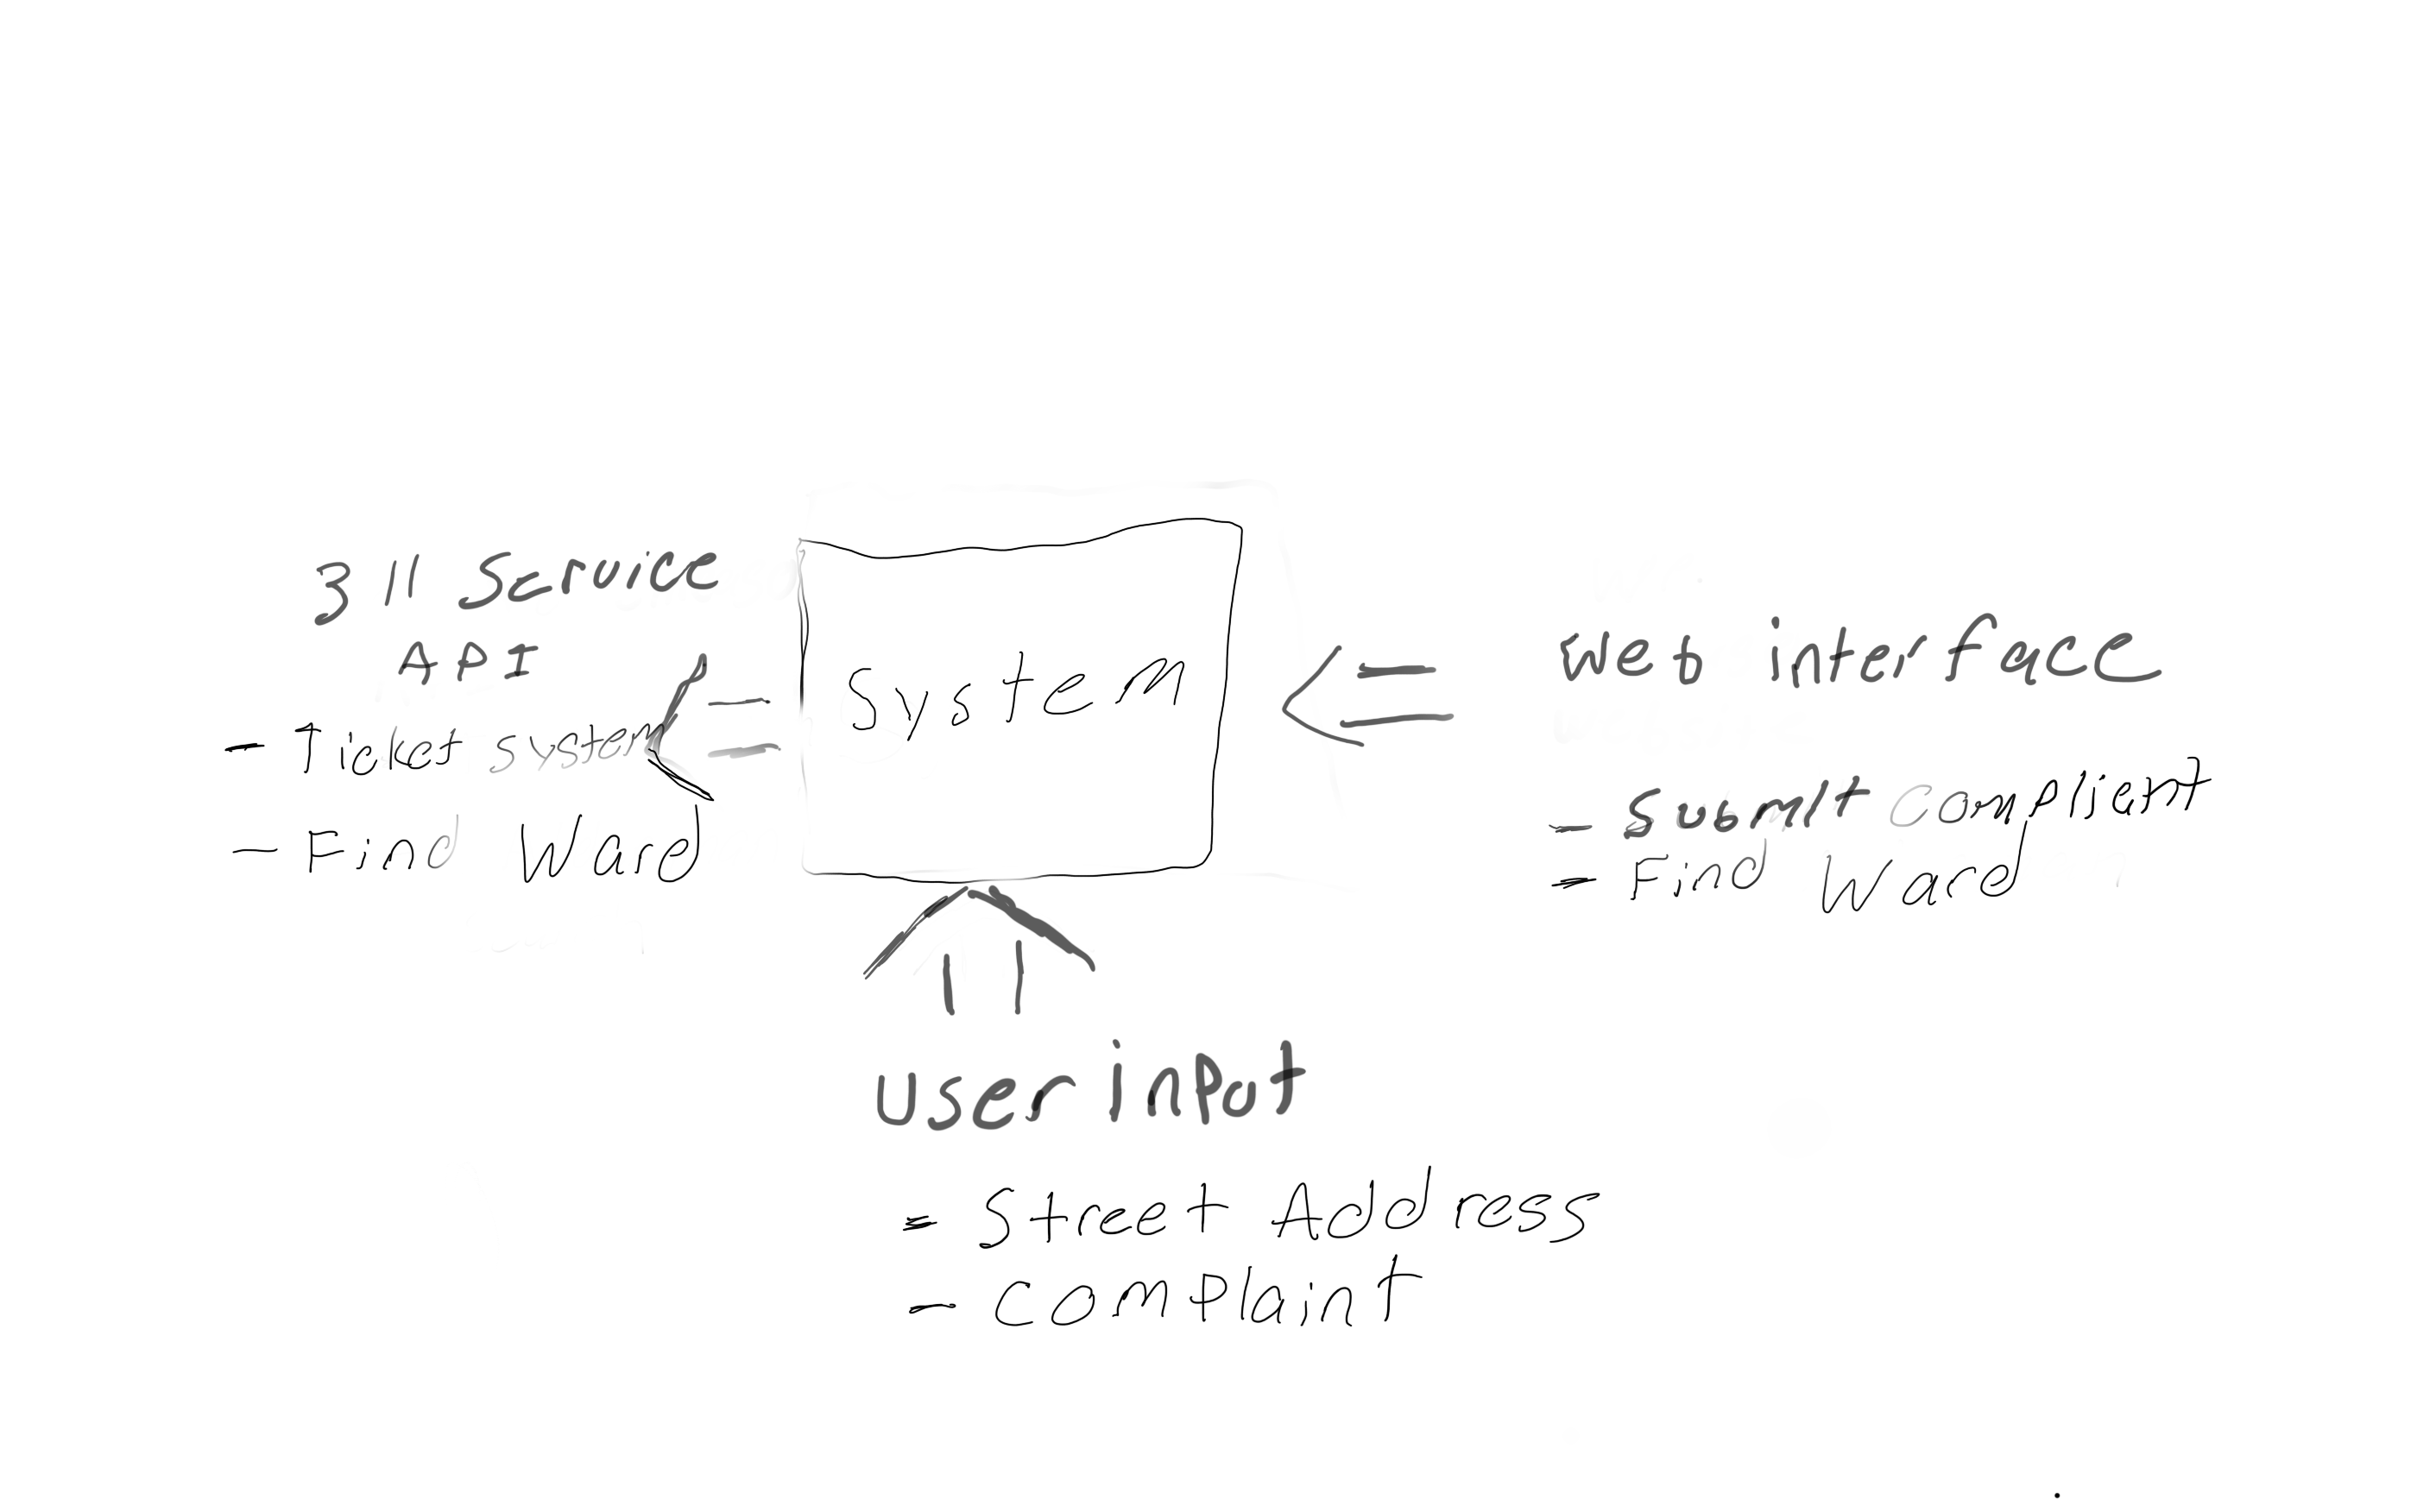 311 Service
API
- Ticket system
- Find Ward
System
Web interface
- Submit complient
- Find Ward
User input
- Street Address
- Complaint